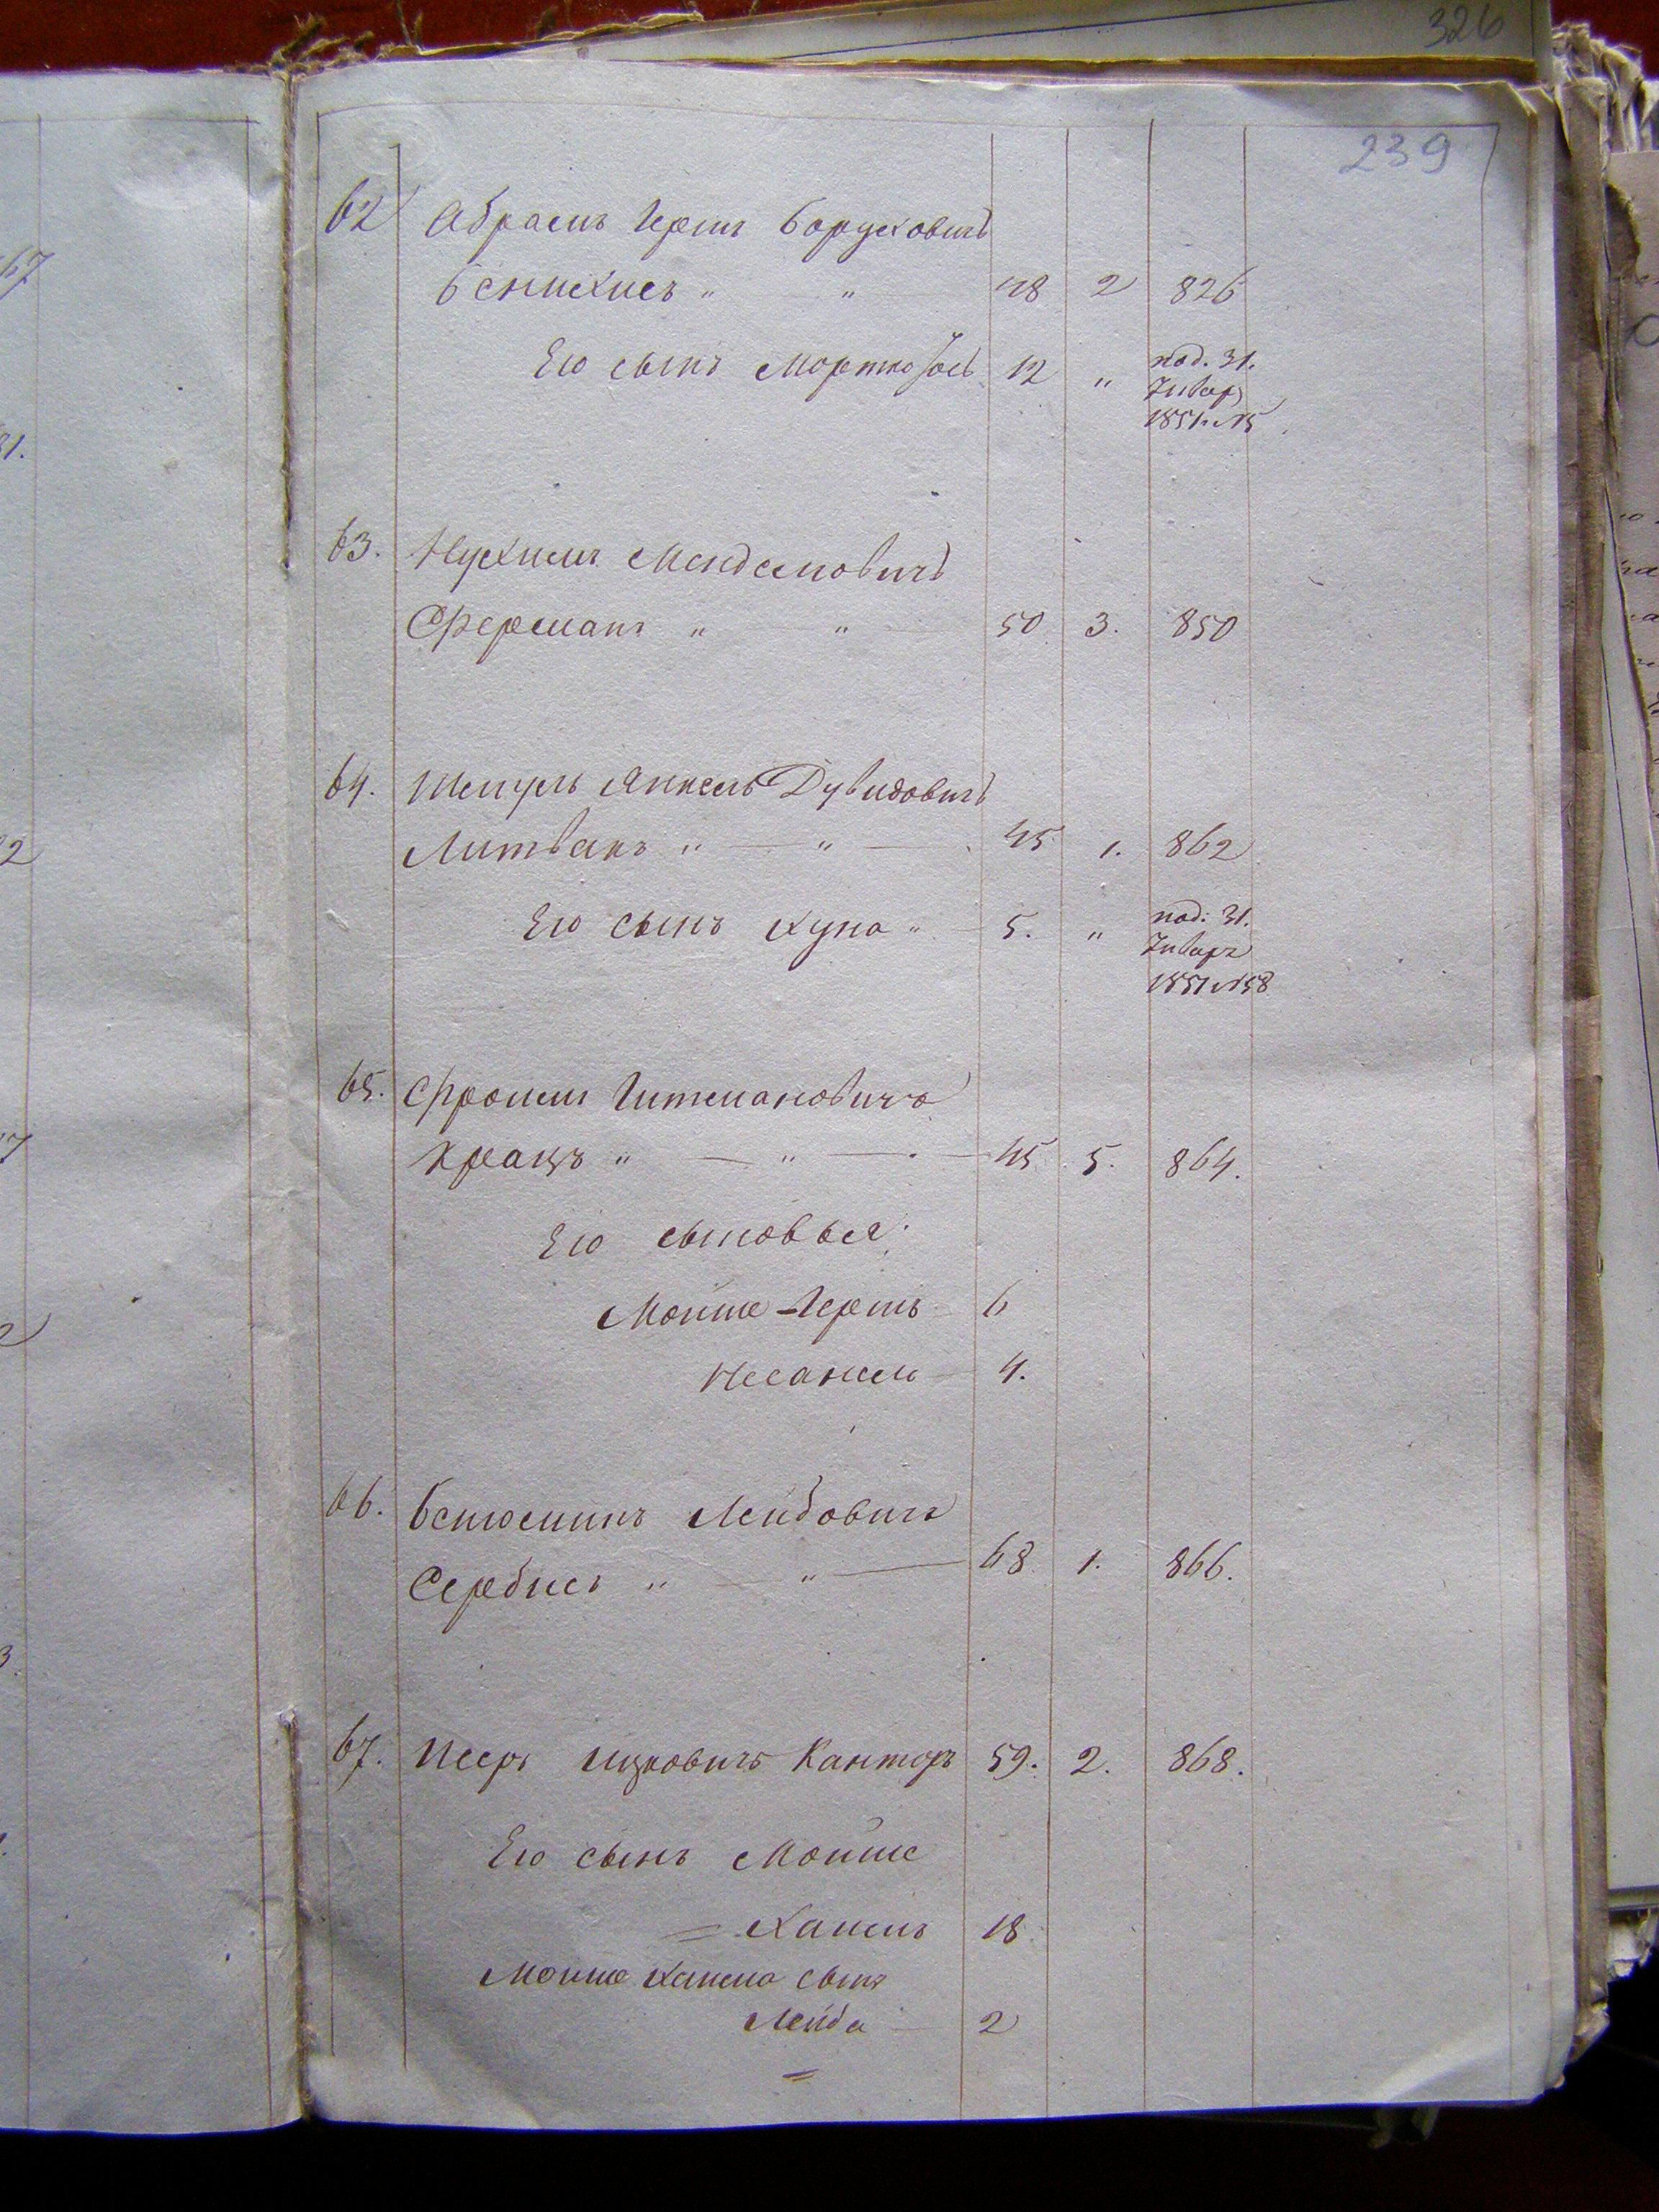 326
239
62 Абрамъ Герш Борухович
Бенихисъ " " 48 2 826
Его сынъ Мортко Іось 12 " под. 31.
Январ
1851 № 15
63. Нухимъ Менделевичъ
Сферманъ " " 50 3. 850
64. Шмуль Янкель Дувидовичъ
Литвакъ " " 45 1. 862
Его сынъ Хуна " 5. " под: 31.
Январ
1851 № 58
65. Фроимъ Гитмановичъ
Крацъ " " 45 5. 864.
Его сыновья:
Мойше-Гершъ 6
Несанель 4.
66. Бенюминъ Лейбович
Сербисъ " " 68 1. 866.
67. Иееръ Ицковичъ Канторъ 59. 2. 868.
Его сынъ Мойше
= Хаимъ 18
Мойше Хаима сынъ
Лейба 2
67
81.
2
7
2
3.